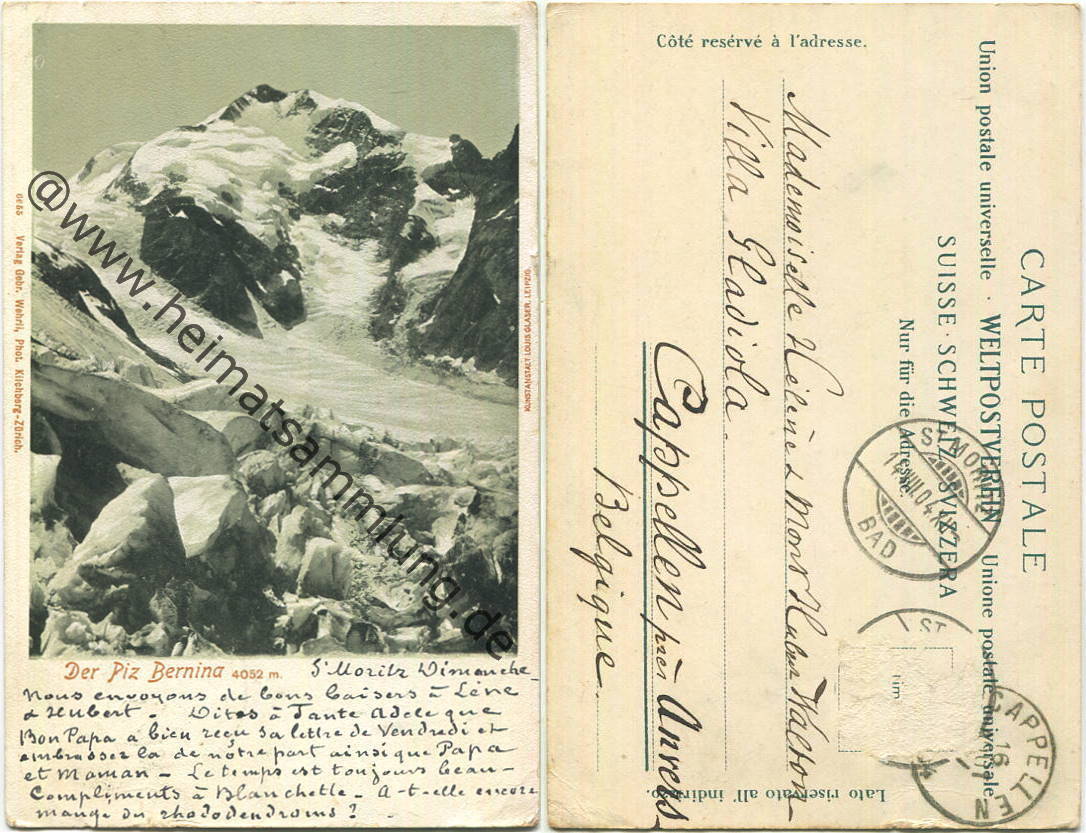 6655 Verlag Gebr. Wehrli, Phot. Kilchberg-Zürich.
KUNSTANSTALT LOUIS GLASER, LEIPZIG.
@www.heimatsammlung.de
Der Piz Bernina 4052 m.
St Moritz Dimanche
Nous envoyons de bons baisers à Lène
& Hubert - Dites à Tante Adèle que
Bon Papa a bien reçu sa lettre de Vendredi et
embrasser la de nôtre part ainsi que Papa
et Maman - Le temps est toujours beau -
Compliments à Blanchette - A-t-elle encore
mangé du rhododendrons ?
CARTE POSTALE
Union postale universelle · WELTPOSTVEREIN · Unione postale universale
SUISSE · SCHWEIZ · SVIZZERA
Nur für die Adresse.
Côté resérvé à l'adresse.
Lato riservato all' indirizzo.
Mademoiselle Hélène & Monsr Hubert
Villa Gladiola.
Cappellen près Anvers
Belgique.
ST MORITZ
BAD
ST
rim
CAPPELLEN
16